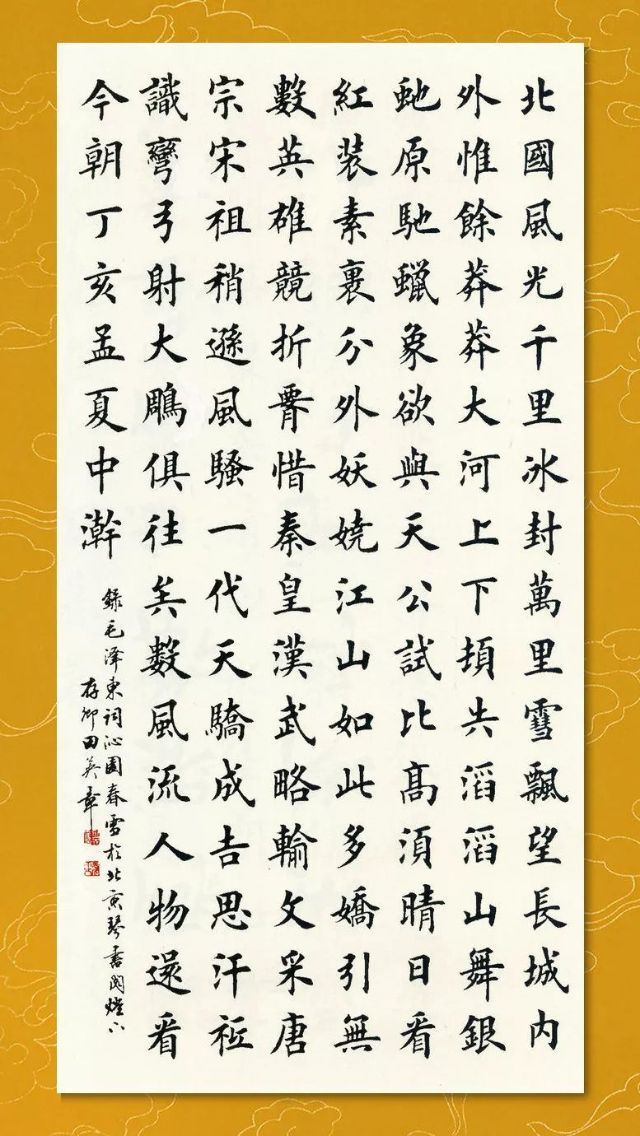 北國風光千里冰封萬里雪飄望長城内
外惟餘莽莽大河上下頓失滔滔山舞銀
虵原馳蠟象欲與天公試比高須晴日看
紅装素裹分外妖娆江山如此多嬌引無
數英雄競折腰惜秦皇漢武略輸文采唐
宗宋祖稍遜風騷一代天驕成吉思汗祗
識彎弓射大鵰俱往矣數風流人物還看
今朝丁亥孟夏中澣
録毛泽东词沁园春雪於北京琴書閣燈下
存卿田英章